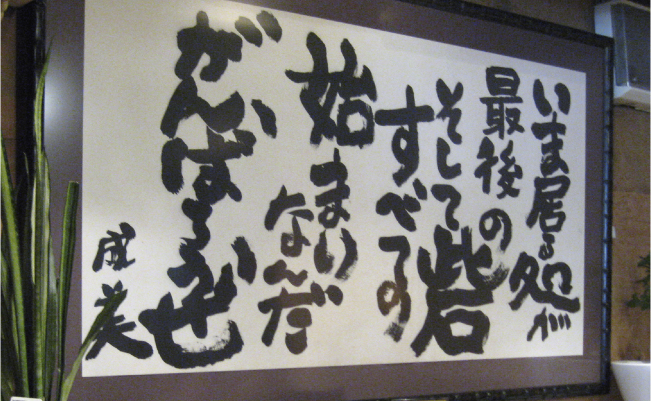 いま居る処が
最後の
そして砦
すべての
始まりなんだ
がんばろうぜ
成美